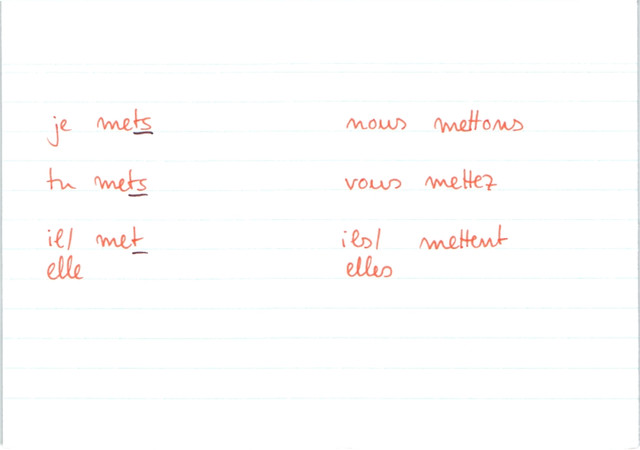 je mets nous mettons
tu mets vous mettez
il/ met ils/ mettent
elle elles